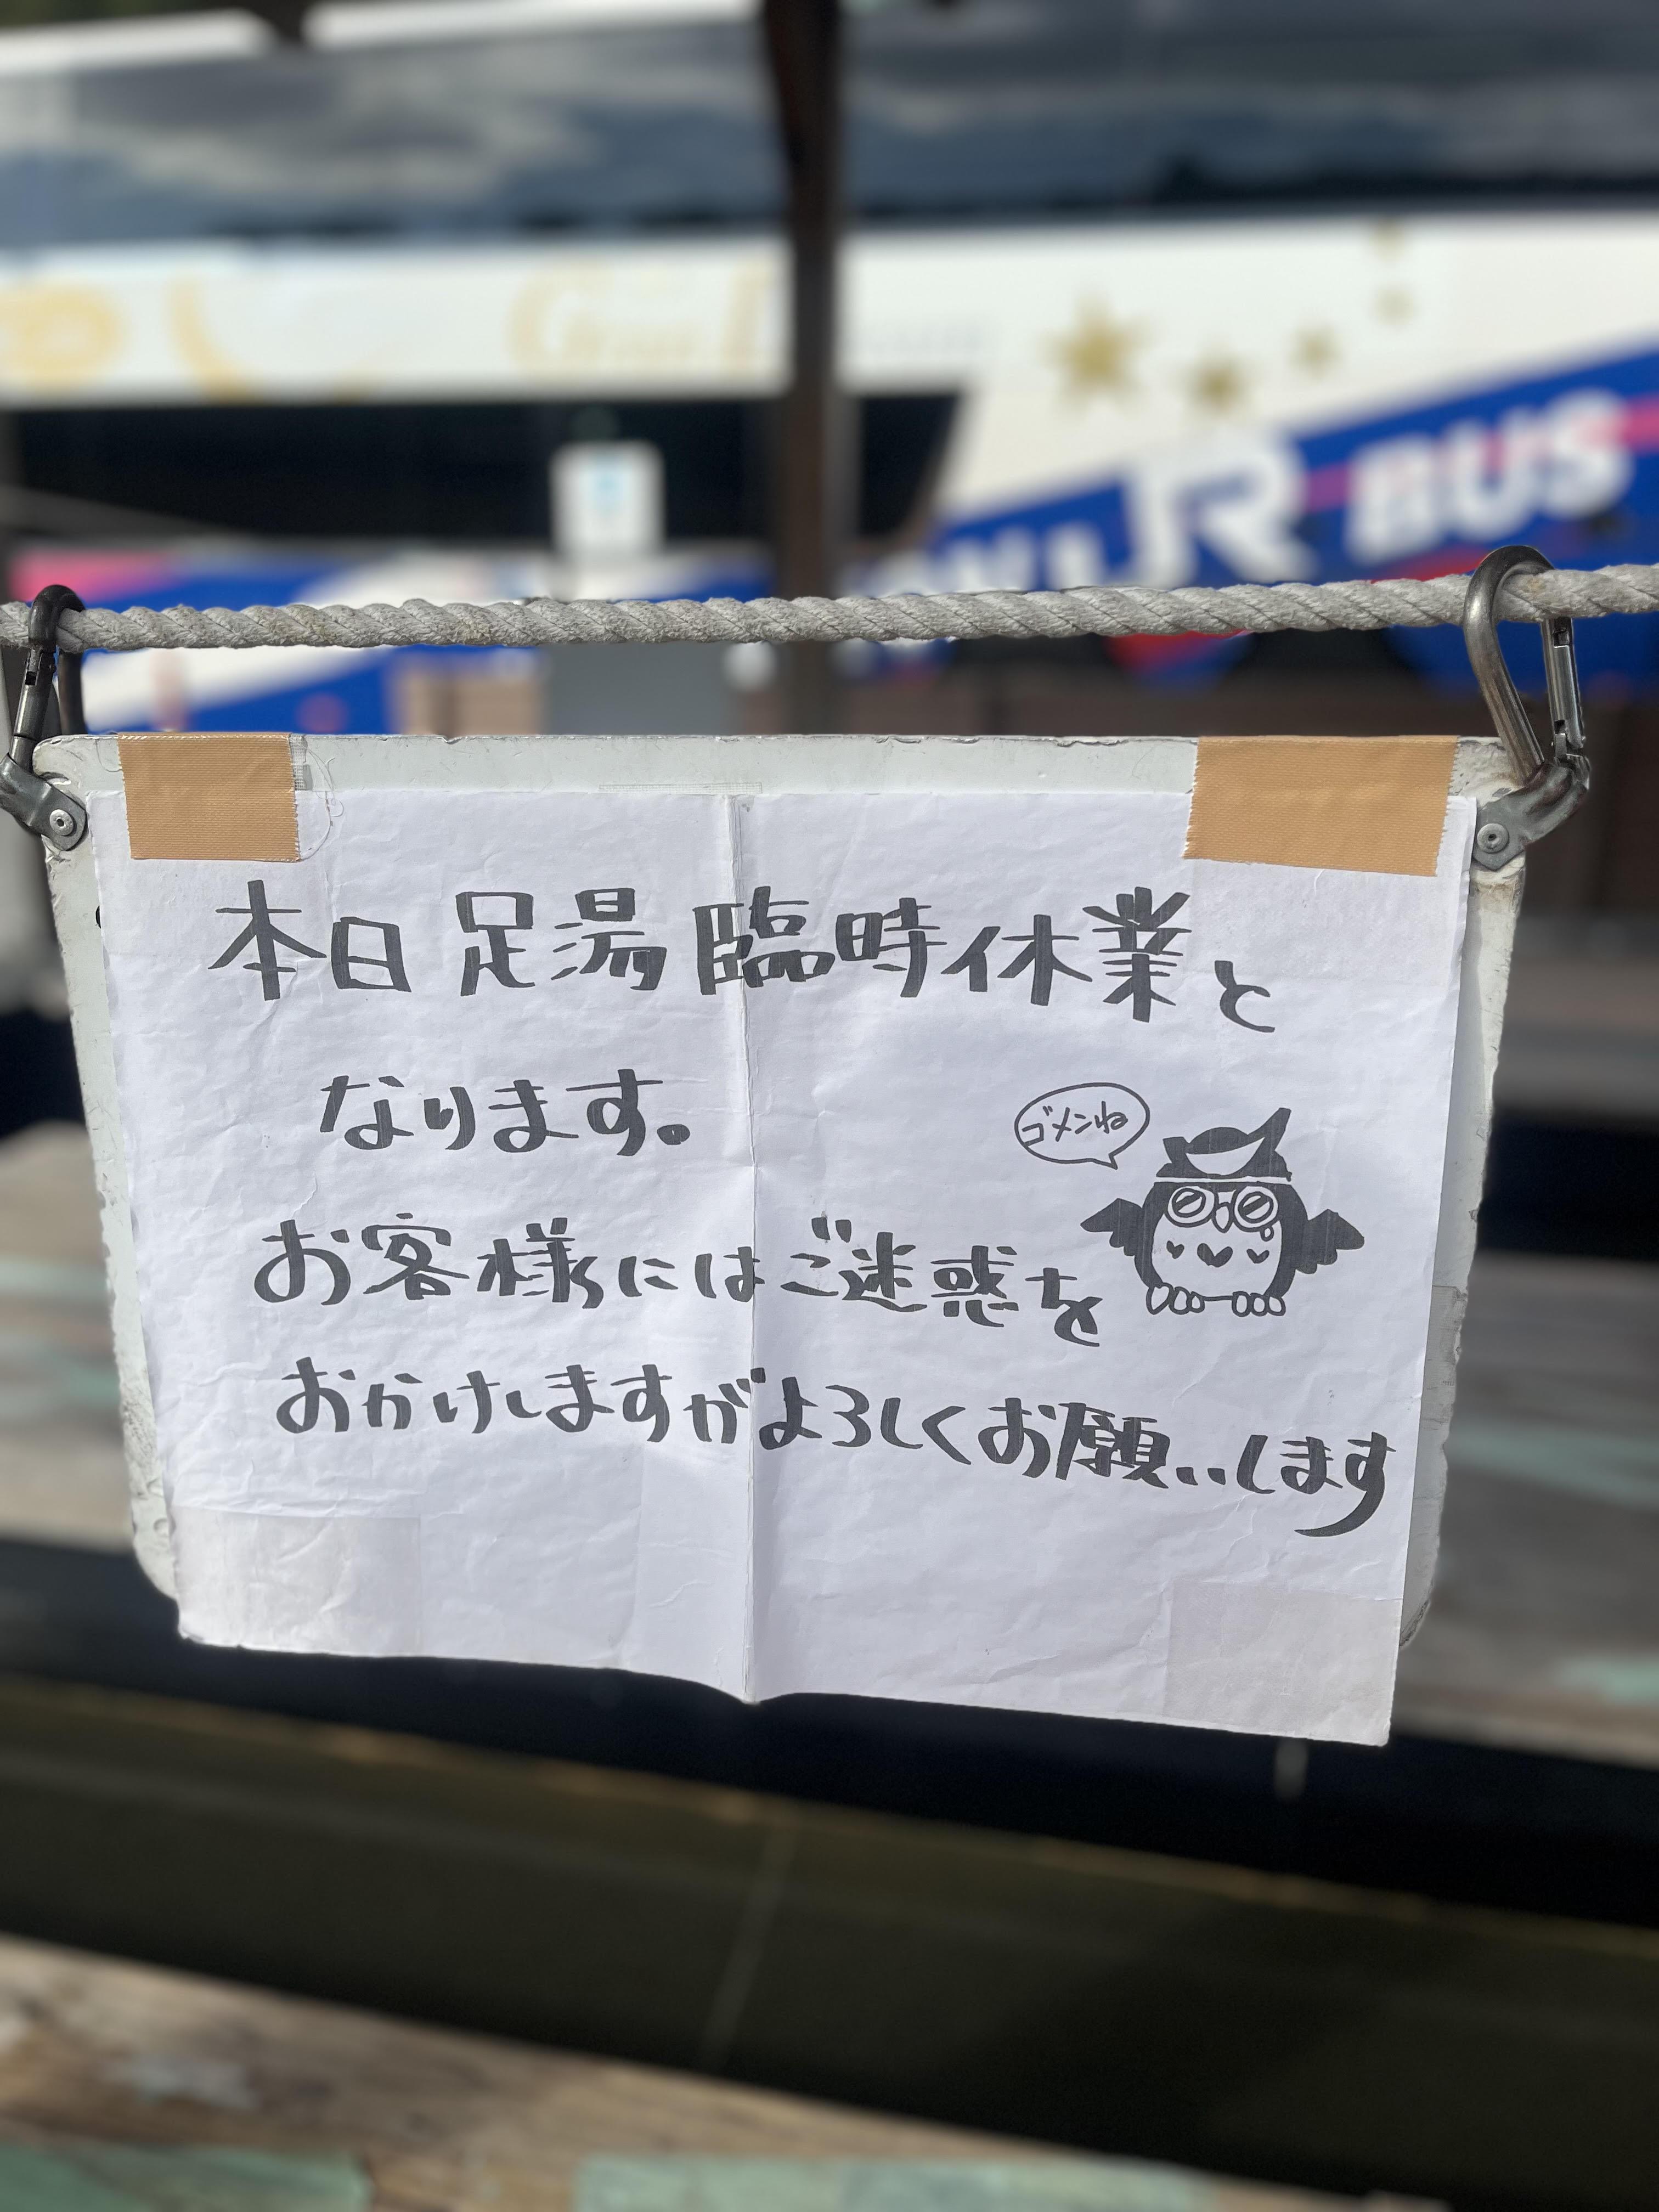 JR BUS
本日 足湯 臨時休業と
なります。
ゴメンね
お客様にはご迷惑を
おかけしますがよろしくお願いします